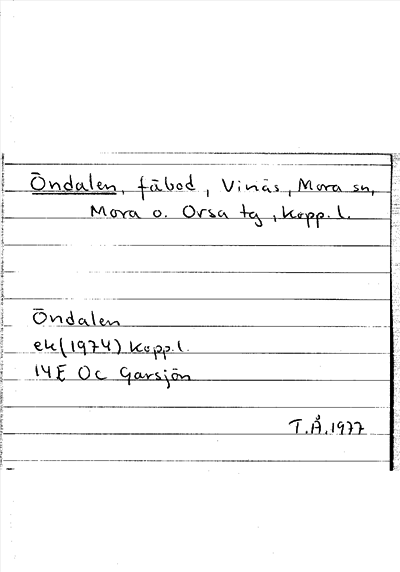 Öndalen, fäbod, Vinäs, Mora sn,
Mora o. Orsa tg, Kopp. l.
Öndalen
ek (1974) Kopp. l.
14E 0c Garsjön
T.Å. 1977